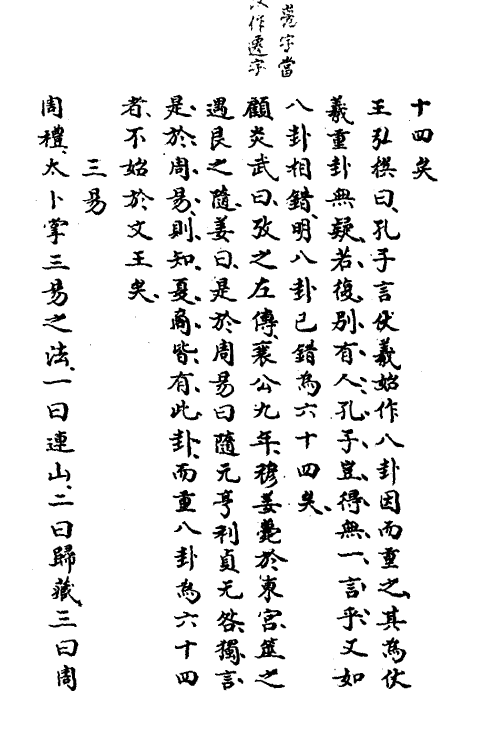 薨字當
作遷字
十四矣
王弘撰曰、孔子言伏羲始作八卦因而重之、其為伏
羲重卦無疑、若復別有人、孔子豈得無一言乎、又如
八卦相錯、明八卦已錯為六十四矣、
顧炎武曰、攷之左傳、襄公九年、穆姜薨於東宮、筮之
遇艮之隨、姜曰、是於周易曰隨元亨利貞无咎、獨言
是於周易、則知夏商皆有此卦、而重八卦為六十四
者、不始於文王矣、
三易
周禮、太卜掌三易之法、一曰連山、二曰歸藏、三曰周